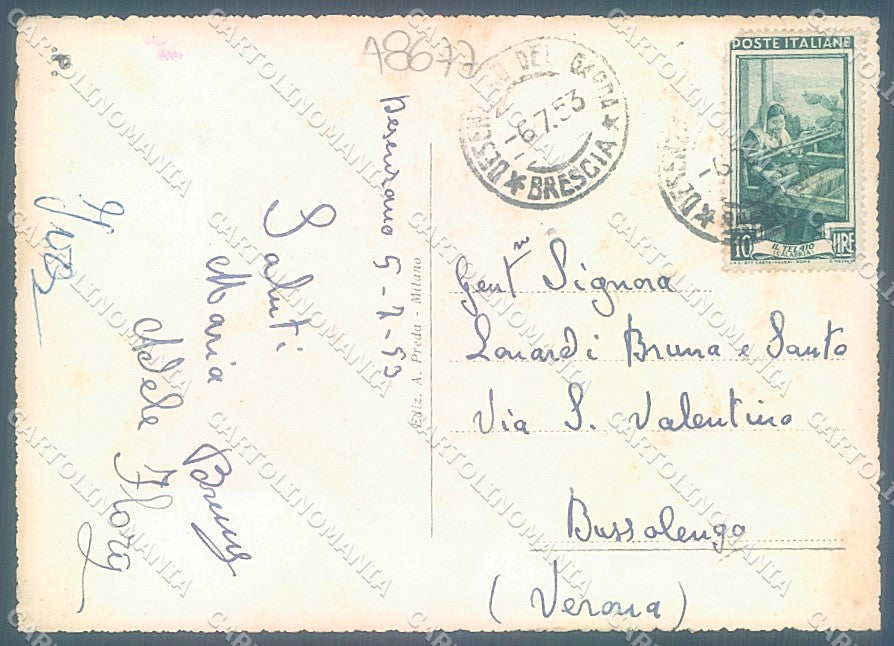 18677
Desenzano 5-7-53
Saluti
Maria Bruna
Adele
Ediz. A. Preda - Milano
DESENZANO DEL GARDA
6.7.53
* BRESCIA *
POSTE ITALIANE
10 LIRE
IL TELAIO
Gentᵐ Signora
Lonardi Bruna e Santo
Via S. Valentino
Bussolengo
(Verona)
CARTOLINOMANIA